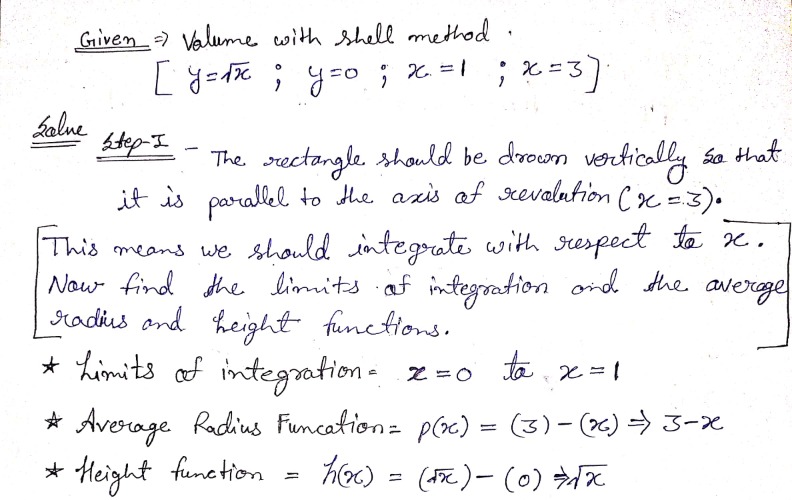 Given ⇒ Volume with shell method.
[ y=√x ; y=0 ; x=1 ; x=3 ]
Solve
Step-I - The rectangle should be drown vertically so that
it is parallel to the axis of revolution (x=3).
This means we should integrate with respect to x.
Now find the limits of integration and the average
radius and height functions.
* Limits of integration = x=0 to x=1
* Average Radius Funcation = p(x) = (3)-(x) ⇒ 3-x
* Height function = h(x) = (√x)-(0) ⇒ √x